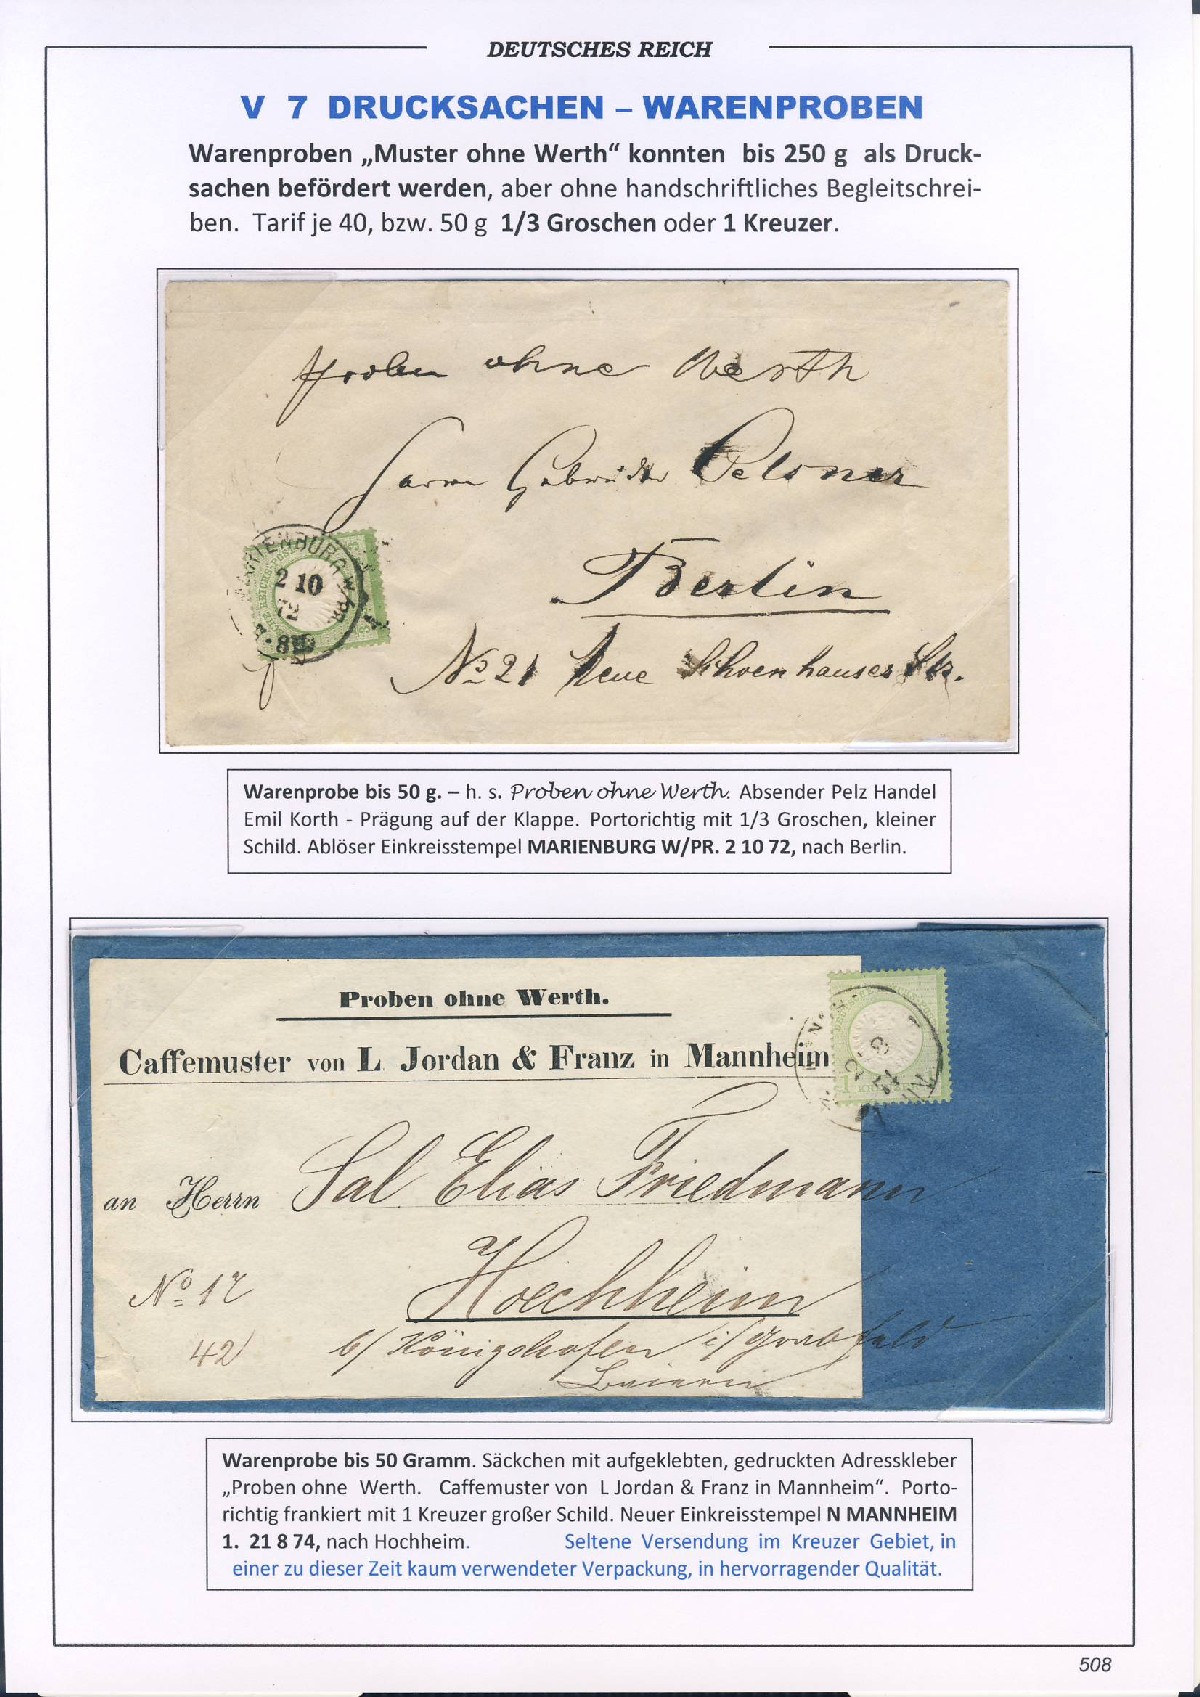 DEUTSCHES REICH
V 7 DRUCKSACHEN – WARENPROBEN
Warenproben „Muster ohne Werth“ konnten bis 250 g als Druck-
sachen befördert werden, aber ohne handschriftliches Begleitschrei-
ben. Tarif je 40, bzw. 50 g 1/3 Groschen oder 1 Kreuzer.
Proben ohne Werth
Herrn Gebrüder
MARIENBURG W/PR.
2 10
72
Berlin
No 21 Neue Schoenhauser Str.
Warenprobe bis 50 g. – h. s. Proben ohne Werth. Absender Pelz Handel
Emil Korth - Prägung auf der Klappe. Portorichtig mit 1/3 Groschen, kleiner
Schild. Ablöser Einkreisstempel MARIENBURG W/PR. 2 10 72, nach Berlin.
Proben ohne Werth.
Caffemuster von L Jordan & Franz in Mannheim
an Herrn Sal Elias Friedmann
No 17
Hoechheim
42
b/ Königshofen i/ Grabfeld
Baiern
Warenprobe bis 50 Gramm. Säckchen mit aufgeklebten, gedruckten Adresskleber
„Proben ohne Werth. Caffemuster von L Jordan & Franz in Mannheim“. Porto-
richtig frankiert mit 1 Kreuzer großer Schild. Neuer Einkreisstempel N MANNHEIM
1. 21 8 74, nach Hochheim. Seltene Versendung im Kreuzer Gebiet, in
einer zu dieser Zeit kaum verwendeter Verpackung, in hervorragender Qualität.
508